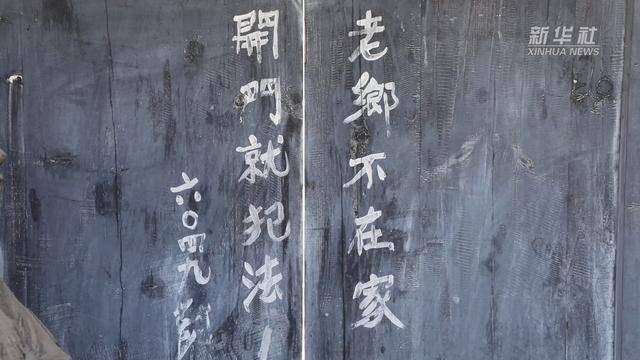 老鄉不在家
開門就犯法！
六〇四九
新华社
XINHUA NEWS